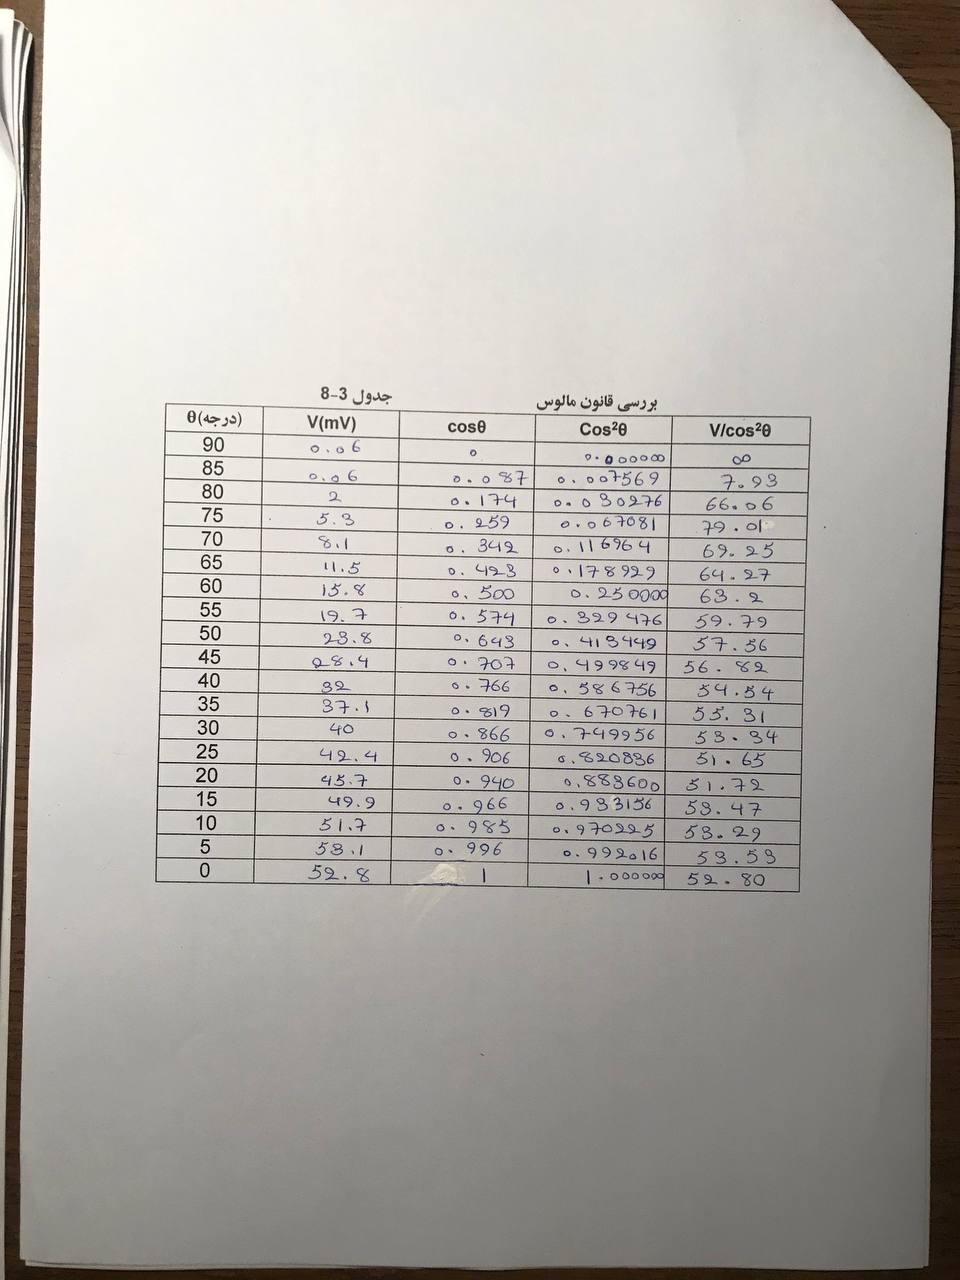 بررسی قانون مالوس جدول 3-8
θ(درجه) V(mV) cosθ Cos²θ V/cos²θ
90 0.06 0 0.000000 ∞
85 0.06 0.087 0.007569 7.93
80 2 0.174 0.030276 66.06
75 5.3 0.259 0.067081 79.01
70 8.1 0.342 0.116964 69.25
65 11.5 0.423 0.178929 64.27
60 15.8 0.500 0.250000 63.2
55 19.7 0.574 0.329476 59.79
50 23.8 0.643 0.413449 57.56
45 28.4 0.707 0.499849 56.82
40 32 0.766 0.586756 54.54
35 37.1 0.819 0.670761 55.31
30 40 0.866 0.749956 53.34
25 42.4 0.906 0.820836 51.65
20 45.7 0.940 0.883600 51.72
15 49.9 0.966 0.933156 53.47
10 51.7 0.985 0.970225 53.29
5 53.1 0.996 0.992016 53.53
0 52.8 1 1.000000 52.80